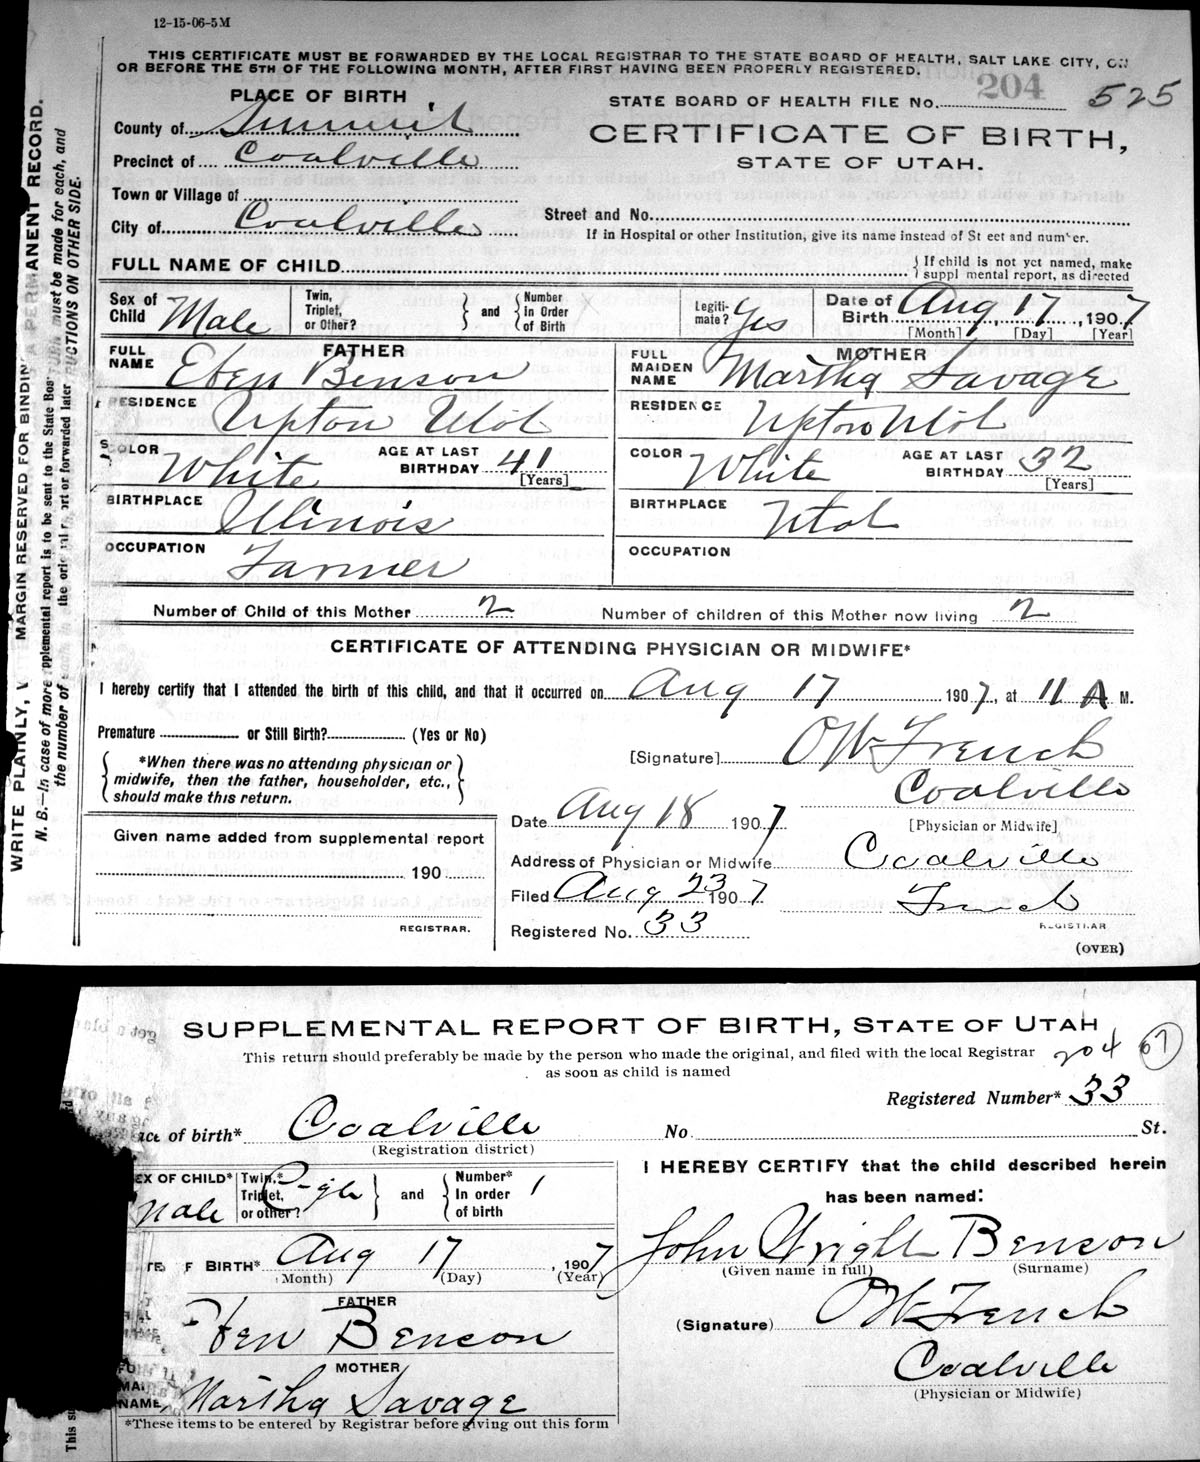 12-15-06-5M
THIS CERTIFICATE MUST BE FORWARDED BY THE LOCAL REGISTRAR TO THE STATE BOARD OF HEALTH, SALT LAKE CITY, ON
OR BEFORE THE 5TH OF THE FOLLOWING MONTH, AFTER FIRST HAVING BEEN PROPERLY REGISTERED.
PLACE OF BIRTH
STATE BOARD OF HEALTH FILE No. 204 525
County of Summit
CERTIFICATE OF BIRTH,
Precinct of Coalville
STATE OF UTAH.
Town or Village of
City of Coalville
Street and No.
If in Hospital or other Institution, give its name instead of St eet and number.
FULL NAME OF CHILD
If child is not yet named, make
suppl mental report, as directed
Sex of Child Male
Twin, Triplet, or Other?
and
Number In Order of Birth
Legiti-mate? Yes
Date of Birth Aug 17, 1907
[Month] [Day] [Year]
FATHER
FULL NAME Eben Benson
MOTHER
FULL MAIDEN NAME Martha Savage
RESIDENCE Upton Utah
RESIDENCE Upton Utah
COLOR White
AGE AT LAST BIRTHDAY 41 [Years]
COLOR White
AGE AT LAST BIRTHDAY 32 [Years]
BIRTHPLACE Illinois
BIRTHPLACE Utah
OCCUPATION Farmer
OCCUPATION
Number of Child of this Mother 2
Number of children of this Mother now living 2
CERTIFICATE OF ATTENDING PHYSICIAN OR MIDWIFE*
I hereby certify that I attended the birth of this child, and that it occurred on Aug 17 1907, at 11 A M.
Premature or Still Birth? (Yes or No)
*When there was no attending physician or
midwife, then the father, householder, etc.,
should make this return.
[Signature] OW French
Coalville
[Physician or Midwife]
Date Aug 18 1907
Given name added from supplemental report
190
REGISTRAR.
Address of Physician or Midwife Coalville
Filed Aug 23 1907 French
REGISTRAR
Registered No. 33
(OVER)
WRITE PLAINLY, MARGIN RESERVED FOR BINDIN A PERMANENT RECORD.
N. B.—In case of more pplemental report is to be sent to the State Boa must be made for each, and
the number of each in the ori ort or forwarded later UCTIONS ON OTHER SIDE.
SUPPLEMENTAL REPORT OF BIRTH, STATE OF UTAH
This return should preferably be made by the person who made the original, and filed with the local Registrar
as soon as child is named
204 07
Registered Number* 33
ace of birth* Coalville
(Registration district)
No St.
EX OF CHILD* male
Twin,* Triplet, or other?
and
Number* In order of birth 1
I HEREBY CERTIFY that the child described herein
has been named:
John Wright Benson
(Given name in full) (Surname)
TE F BIRTH* Aug 17, 1907
(Month) (Day) (Year)
FATHER
Eben Benson
(Signature) OW French
Coalville
(Physician or Midwife)
MOTHER
MAI NAME Martha Savage
*These items to be entered by Registrar before giving out this form
This su